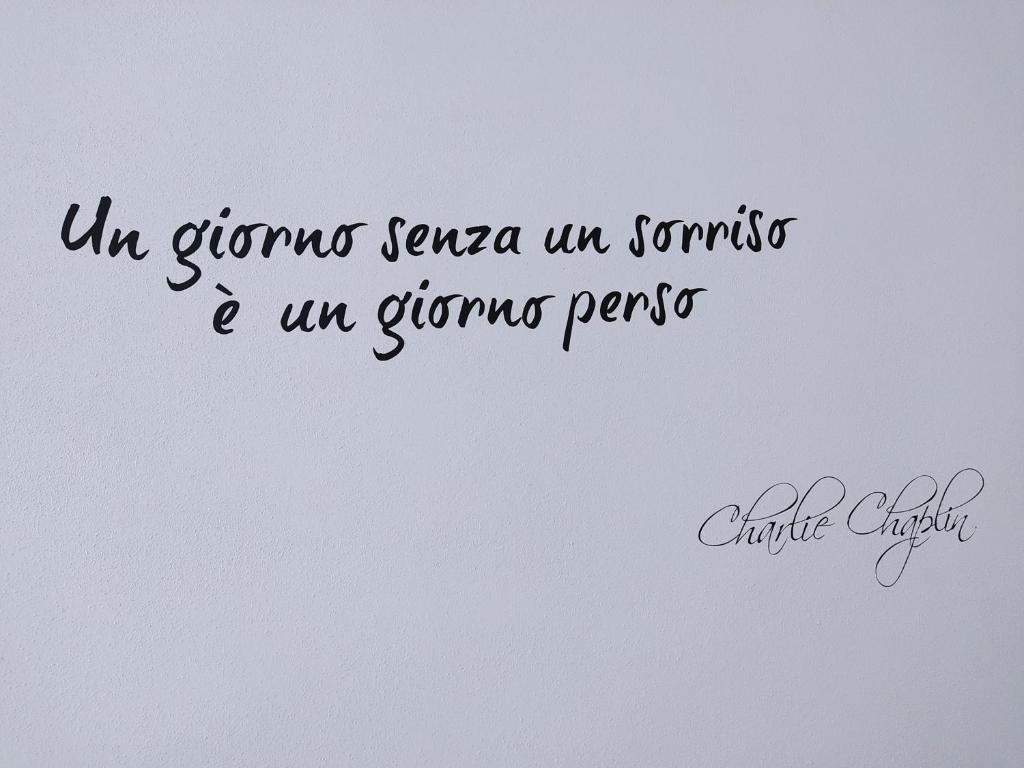 Un giorno senza un sorriso
è un giorno perso
Charlie Chaplin